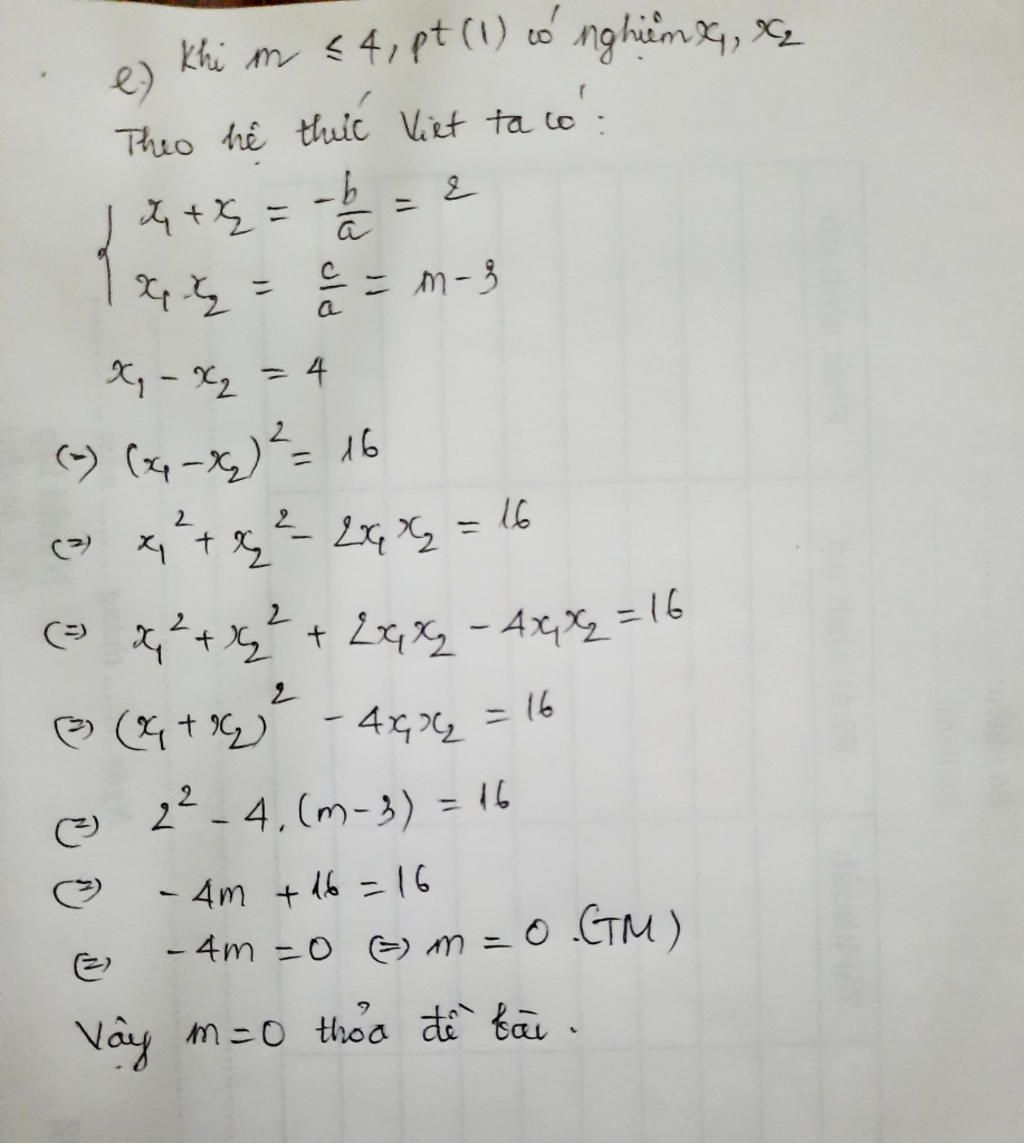 e) Khi m ≤ 4, pt (1) có nghiệm x₁, x₂
Theo hệ thức Viet ta có :
{ x₁ + x₂ = -b/a = 2
x₁.x₂ = c/a = m-3
x₁ - x₂ = 4
(=) (x₁ - x₂)² = 16
(=) x₁² + x₂² - 2x₁x₂ = 16
(=) x₁² + x₂² + 2x₁x₂ - 4x₁x₂ = 16
(=) (x₁ + x₂)² - 4x₁x₂ = 16
(=) 2² - 4.(m-3) = 16
(=) -4m + 16 = 16
(=) -4m = 0 (=) m = 0 .(TM)
Vậy m=0 thỏa đề bài .